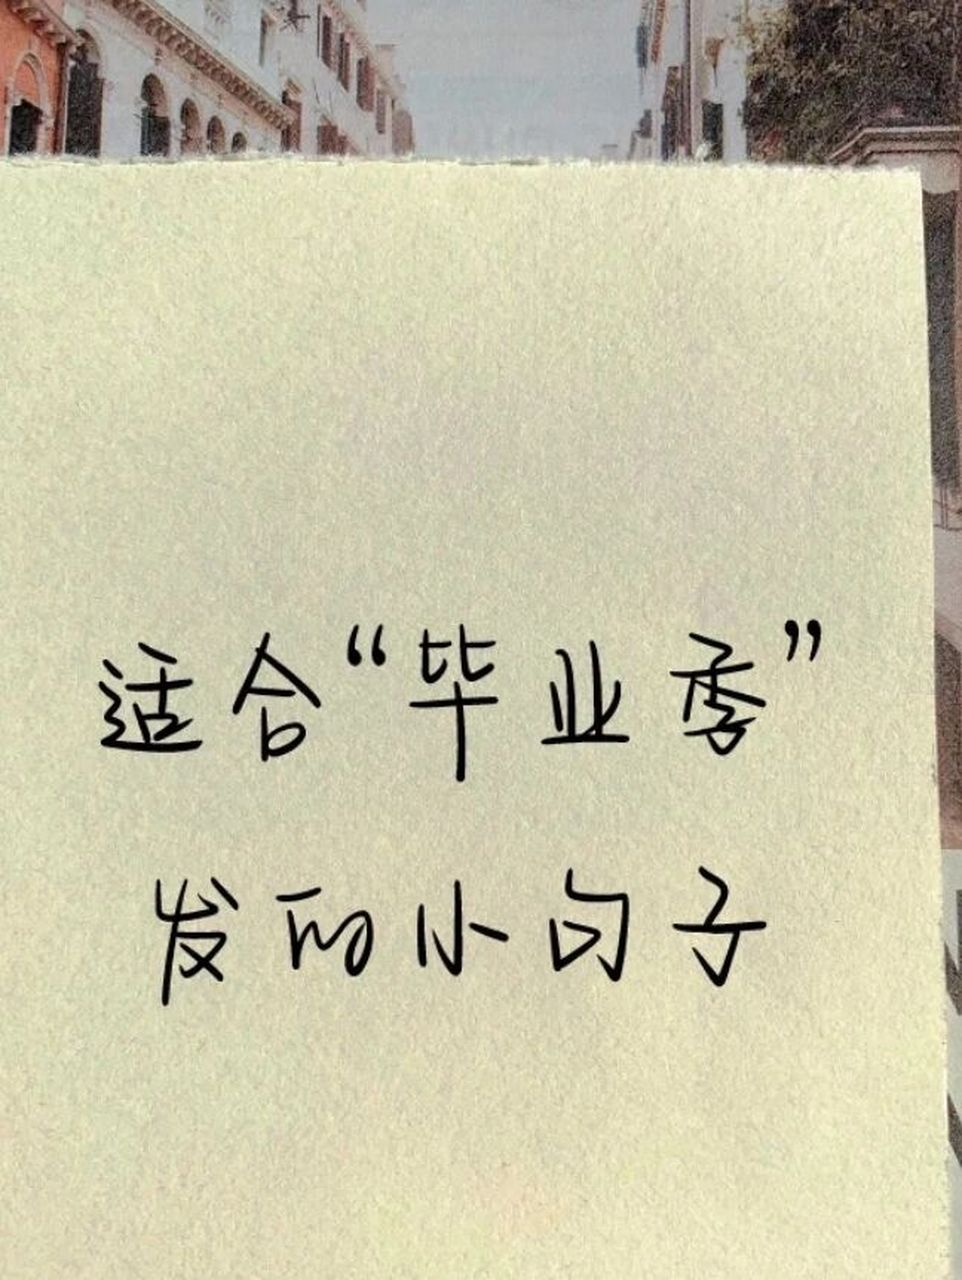 适合“毕业季”
发的小句子